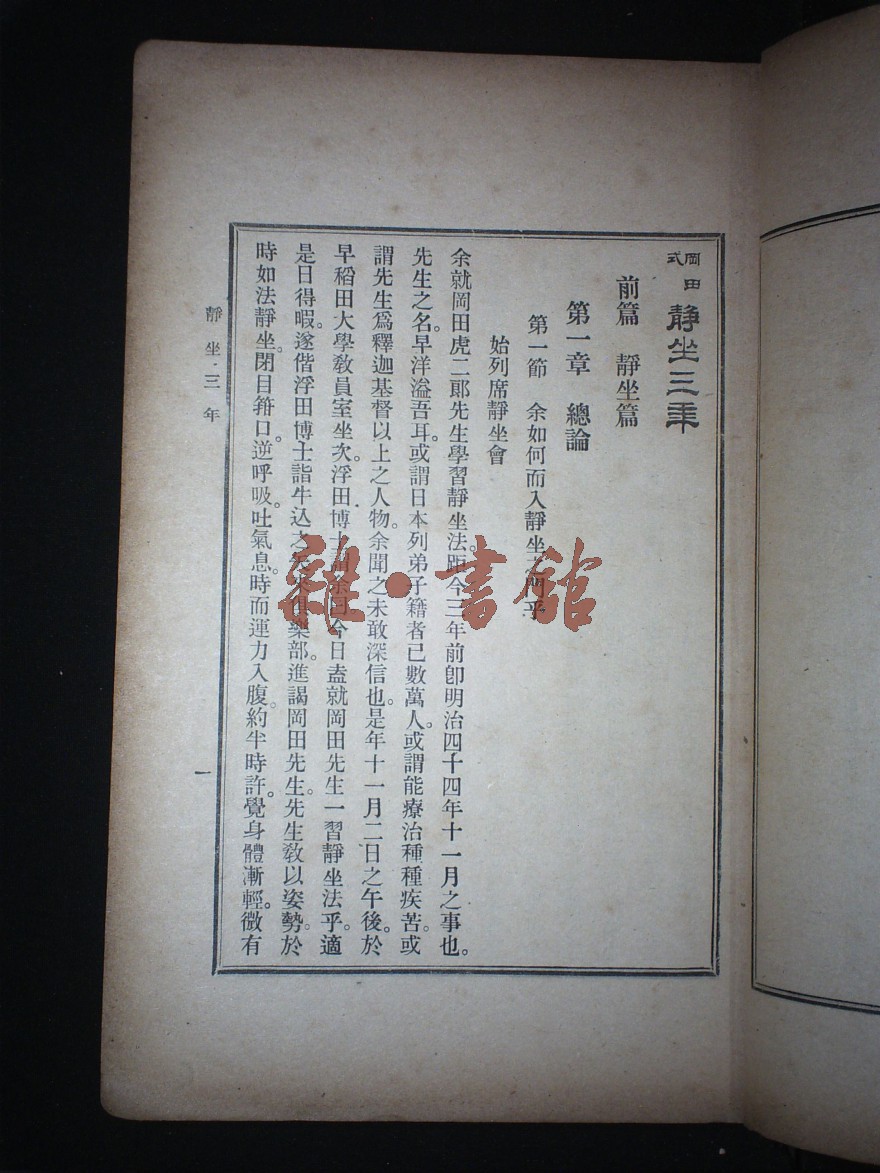 岡田式 靜坐三年
前篇 靜坐篇
第一章 總論
第一節 余如何而入靜坐之門乎
始列席靜坐會
余就岡田虎二郞先生學習靜坐法。距今三年前卽明治四十四年十一月之事也。
先生之名。早洋溢吾耳。或謂日本列弟子籍者已數萬人。或謂能療治種種疾苦。或
謂先生爲釋迦基督以上之人物。余聞之未敢深信也。是年十一月二日之午後。於
早稻田大學敎員室坐次。浮田博士 余曰今日盍就岡田先生一習靜坐法乎。適
是日得暇。遂偕浮田博士詣牛込之 俱樂部。進謁岡田先生。先生敎以姿勢。於
時如法靜坐。閉目箝口。逆呼吸。吐氣息。時而運力入腹。約半時許。覺身體漸輕。微有
靜坐三年
一
雜·書館